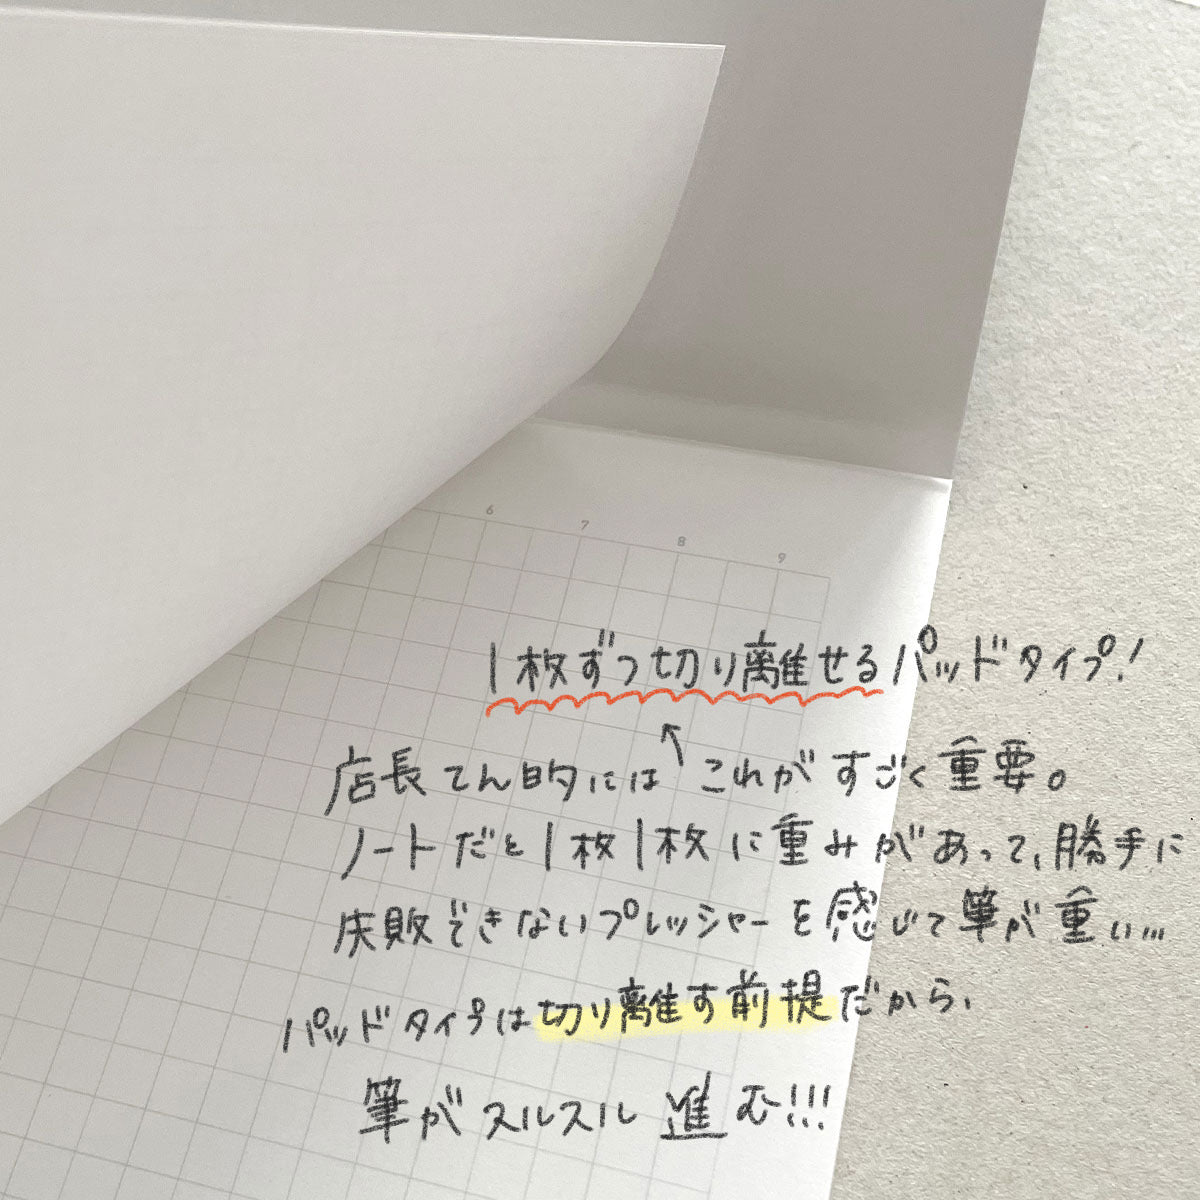 6 7 8 9
1枚ずつ切り離せるパッドタイプ!
店長てん的には↑これがすごく重要。
ノートだと1枚1枚に重みがあって、勝手に
失敗できないプレッシャーを感じて筆が重い...
パッドタイプは切り離す前提だから、
筆がスルスル進む!!!